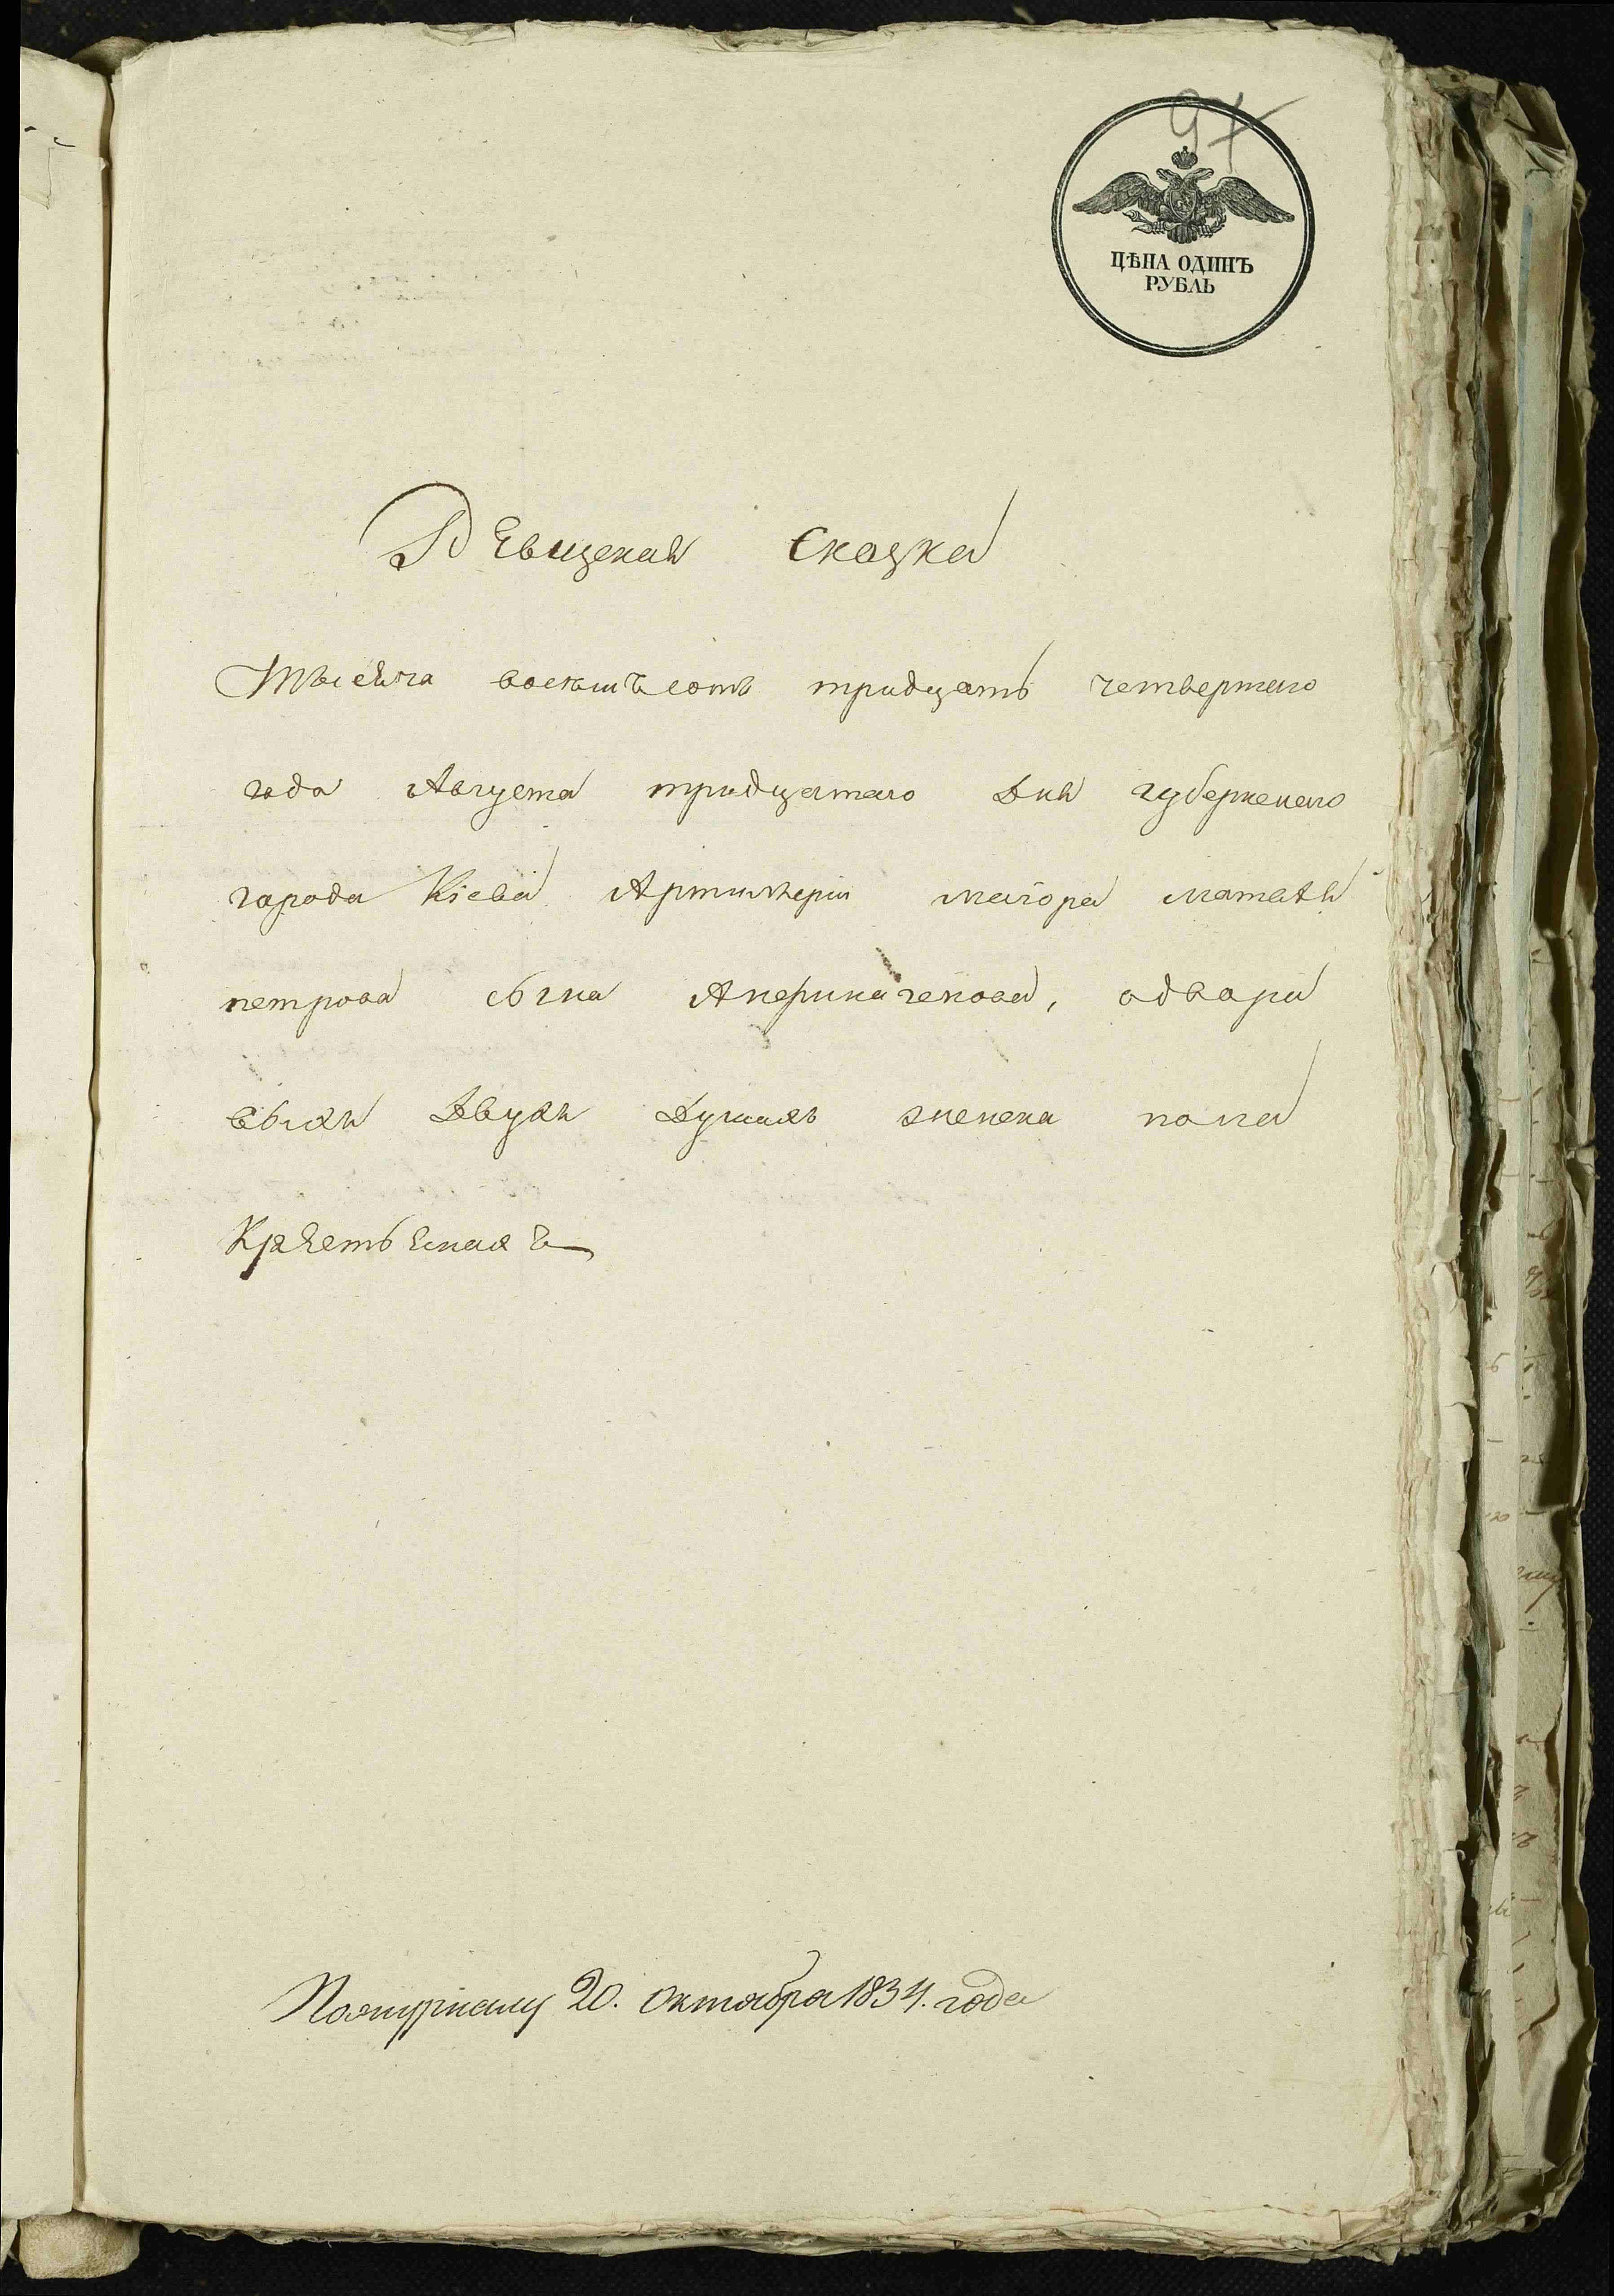 97
ЦѢНА ОДИНЪ
РУБЛЬ
Ревизская Сказка
Тысяча восемъсотъ тридцать четвертаго
года Августа тридцатаго Дня губернскаго
города Кіева Артилеріи маіора матвѣя
петрова сына, одвари
выхъ Двухъ Душахъ женска пола
Крѣстьянахъ
20. Октября 1834. года